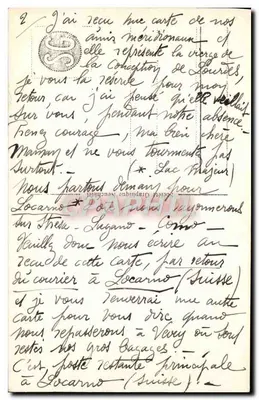 2 J'ai reçu une carte de nos
amis méridionaux et
elle représente la vierge de
la Conception de Lourdes
je vous la réserve pour mon
retour, car j'ai pensé qu'elle veillait
sur vous, pendant notre absence
Prenez courage, ma bien chère
Maman et ne vous tourmentez pas
surtout. — (* Lac Majeur)
Nous partons demain pour
Locarno * d'où nous rayonnerons
sur Stresa - Lugano - Como -
Veuillez donc nous écrire au
reçu de cette carte, par retour
du courrier à Locarno (Suisse)
et je vous renverrai une autre
carte pour vous dire quand
nous repasserons à Vevey où sont
restés nos gros bagages -
C'est poste restante principale
à Locarno (Suisse)! -